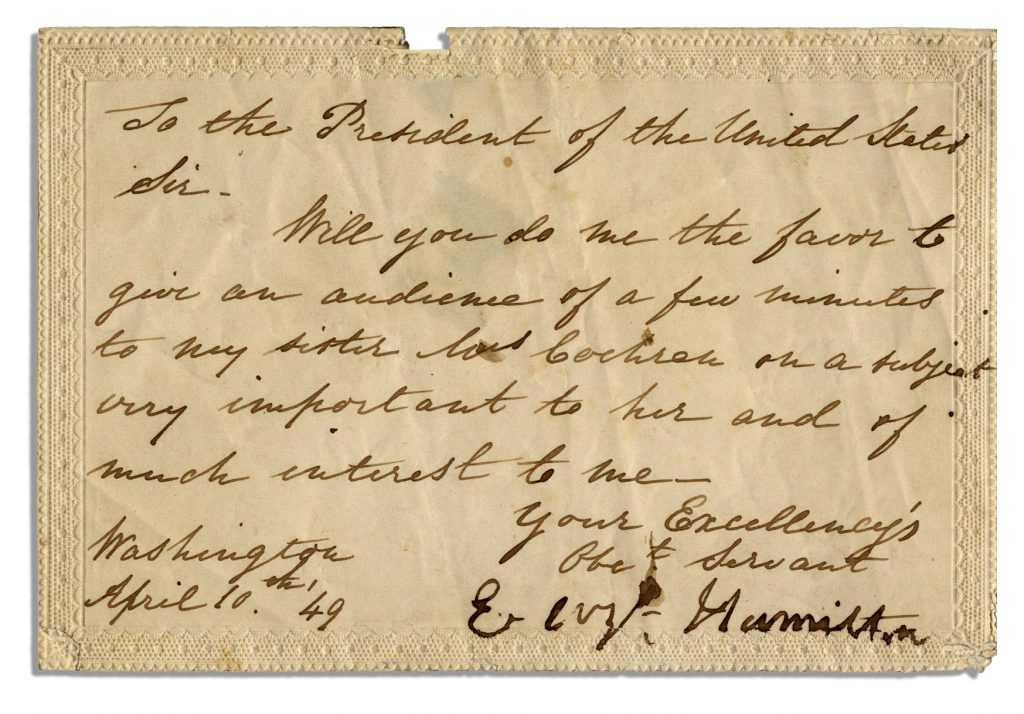 To the President of the United States
Sir -
Will you do me the favor to
give an audience of a few minutes
to my sister Mrs Cochran on a subject
very important to her and of
much interest to me -
Your Excellency's
Obet Servant
Washington
April 10th '49
E Hamilton